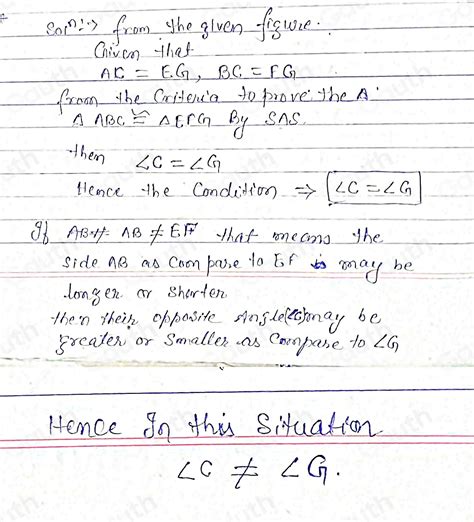 Soln:-> from the given figure.
Given that
AC = EG, BC = FG
from the Criteria to prove the Δ
Δ ABC ≅ Δ EFG By SAS.
then ∠C = ∠G
Hence the Condition ⇒ ∠C = ∠G
If AB≠ AB ≠ EF that means the
side AB as Compare to EF is may be
longer or shorter
then their opposite Angle(∠C)may be
greater or Smaller as Compare to ∠G
Hence In this Situation
∠C ≠ ∠G.